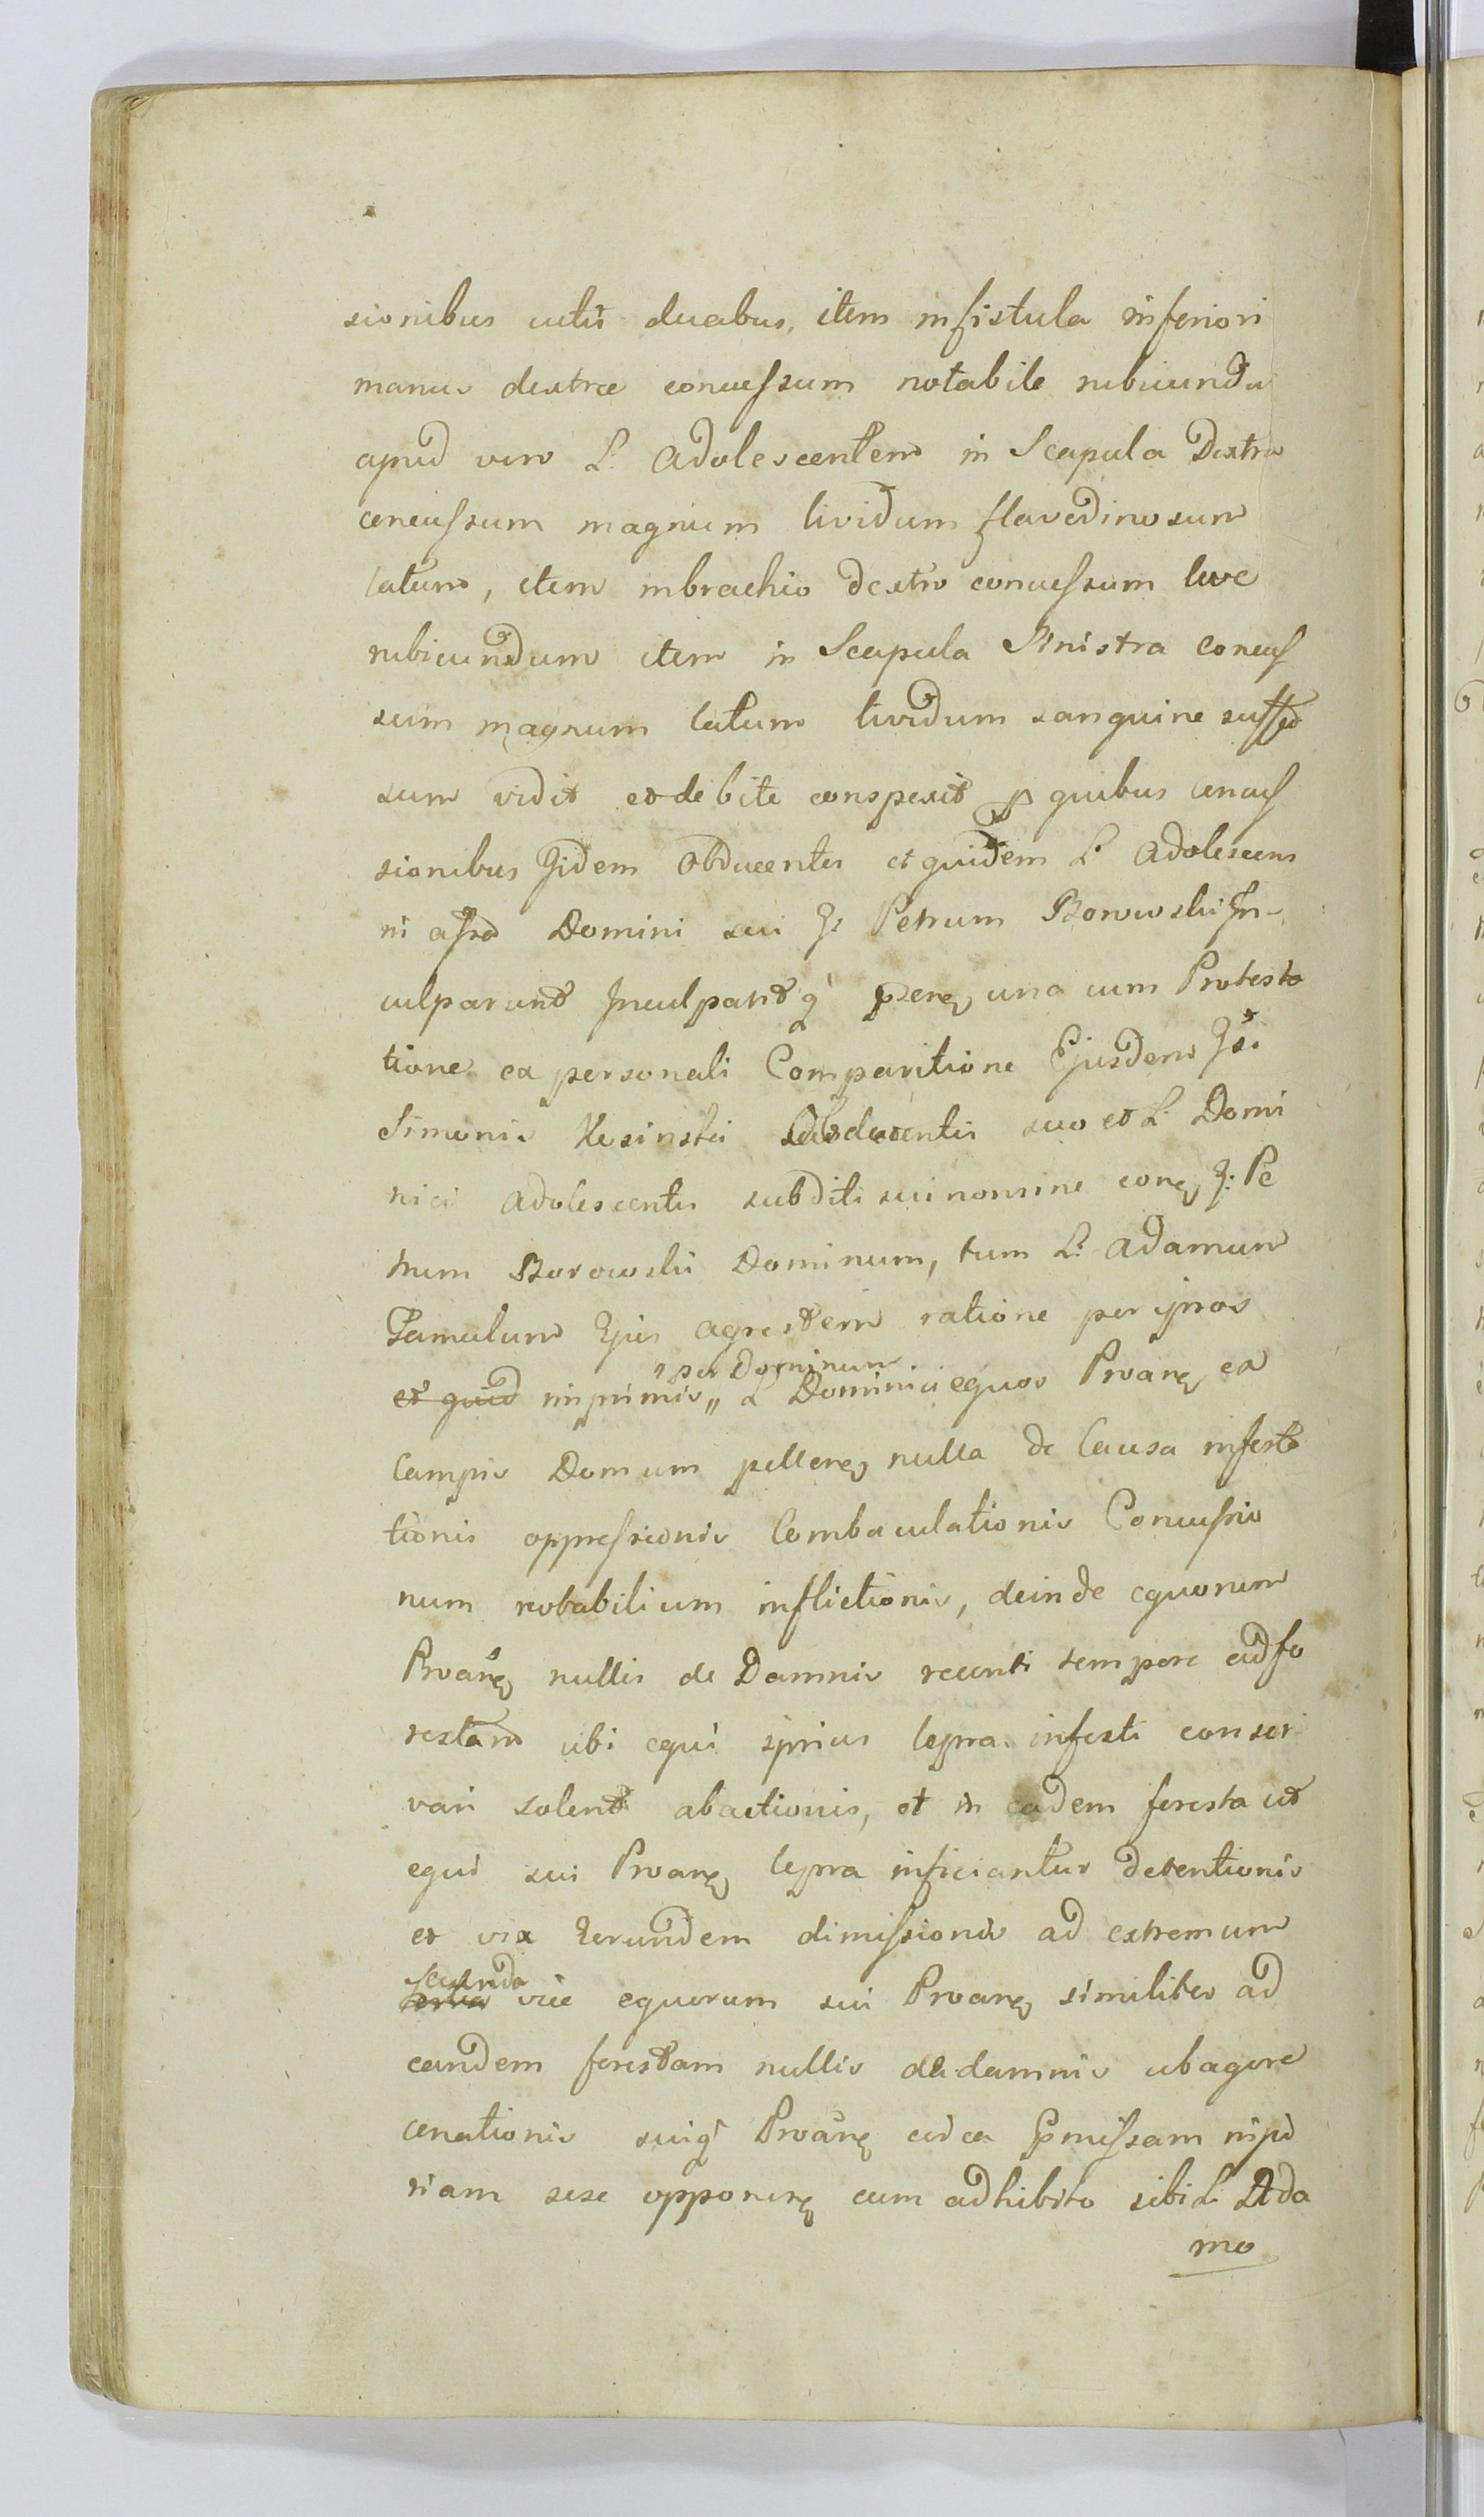 sionibus cutis duabus, item in fistula inferiori
manus dextrae concussum notabile rubicundu
apud vero L. Adolescentem in Scapula Dextra
concussum magnum lividum flavedinosum
latum, item in brachio dextro concussum leve
rubicundum item in Scapula Sinistra concus
sum magnum latum lividum sanguine suffu
sum vidit et debite conspexit quibus concus
sionibus Jidem Obducentes et quidem L. Adolescens
in Domini sui J. Petrum Borowski In-
culparunt Inculpatq una cum Protesta
tione ex personali Comparitione Ejusdem
Simonis Kosinski Obducentis suo et L. Domi
nici Adolescentis subditi sui nomine J. Pe
trum Borowski Dominum, tum L. Adamum
Famulum Ejus agrestem ratione per ipsos
et quid inprimis „ L Dominici equos Proan ex
„ per Dominum
Campis Domum pellere nulla de Causa infesta
tionis oppressionis Combaculationis Concussio
num notabilium inflictionis, deinde equorum
Proan nullis de Damnis recenti tempore ad fo
restam ubi equi ipsius lepra infesti conser
vari solent abactionis, et in eadem foresta ut
equi sui Proan lepra inficiantur detentionis
et vix Eorundem dimissionis ad extremum
secunda
vice equorum sui Proan similiter ad
eandem forestam nullis de damnis abagere
conationis suiq Proan circa missam inju
riam sese opponen cum adhibito sibi L. Ada
mo